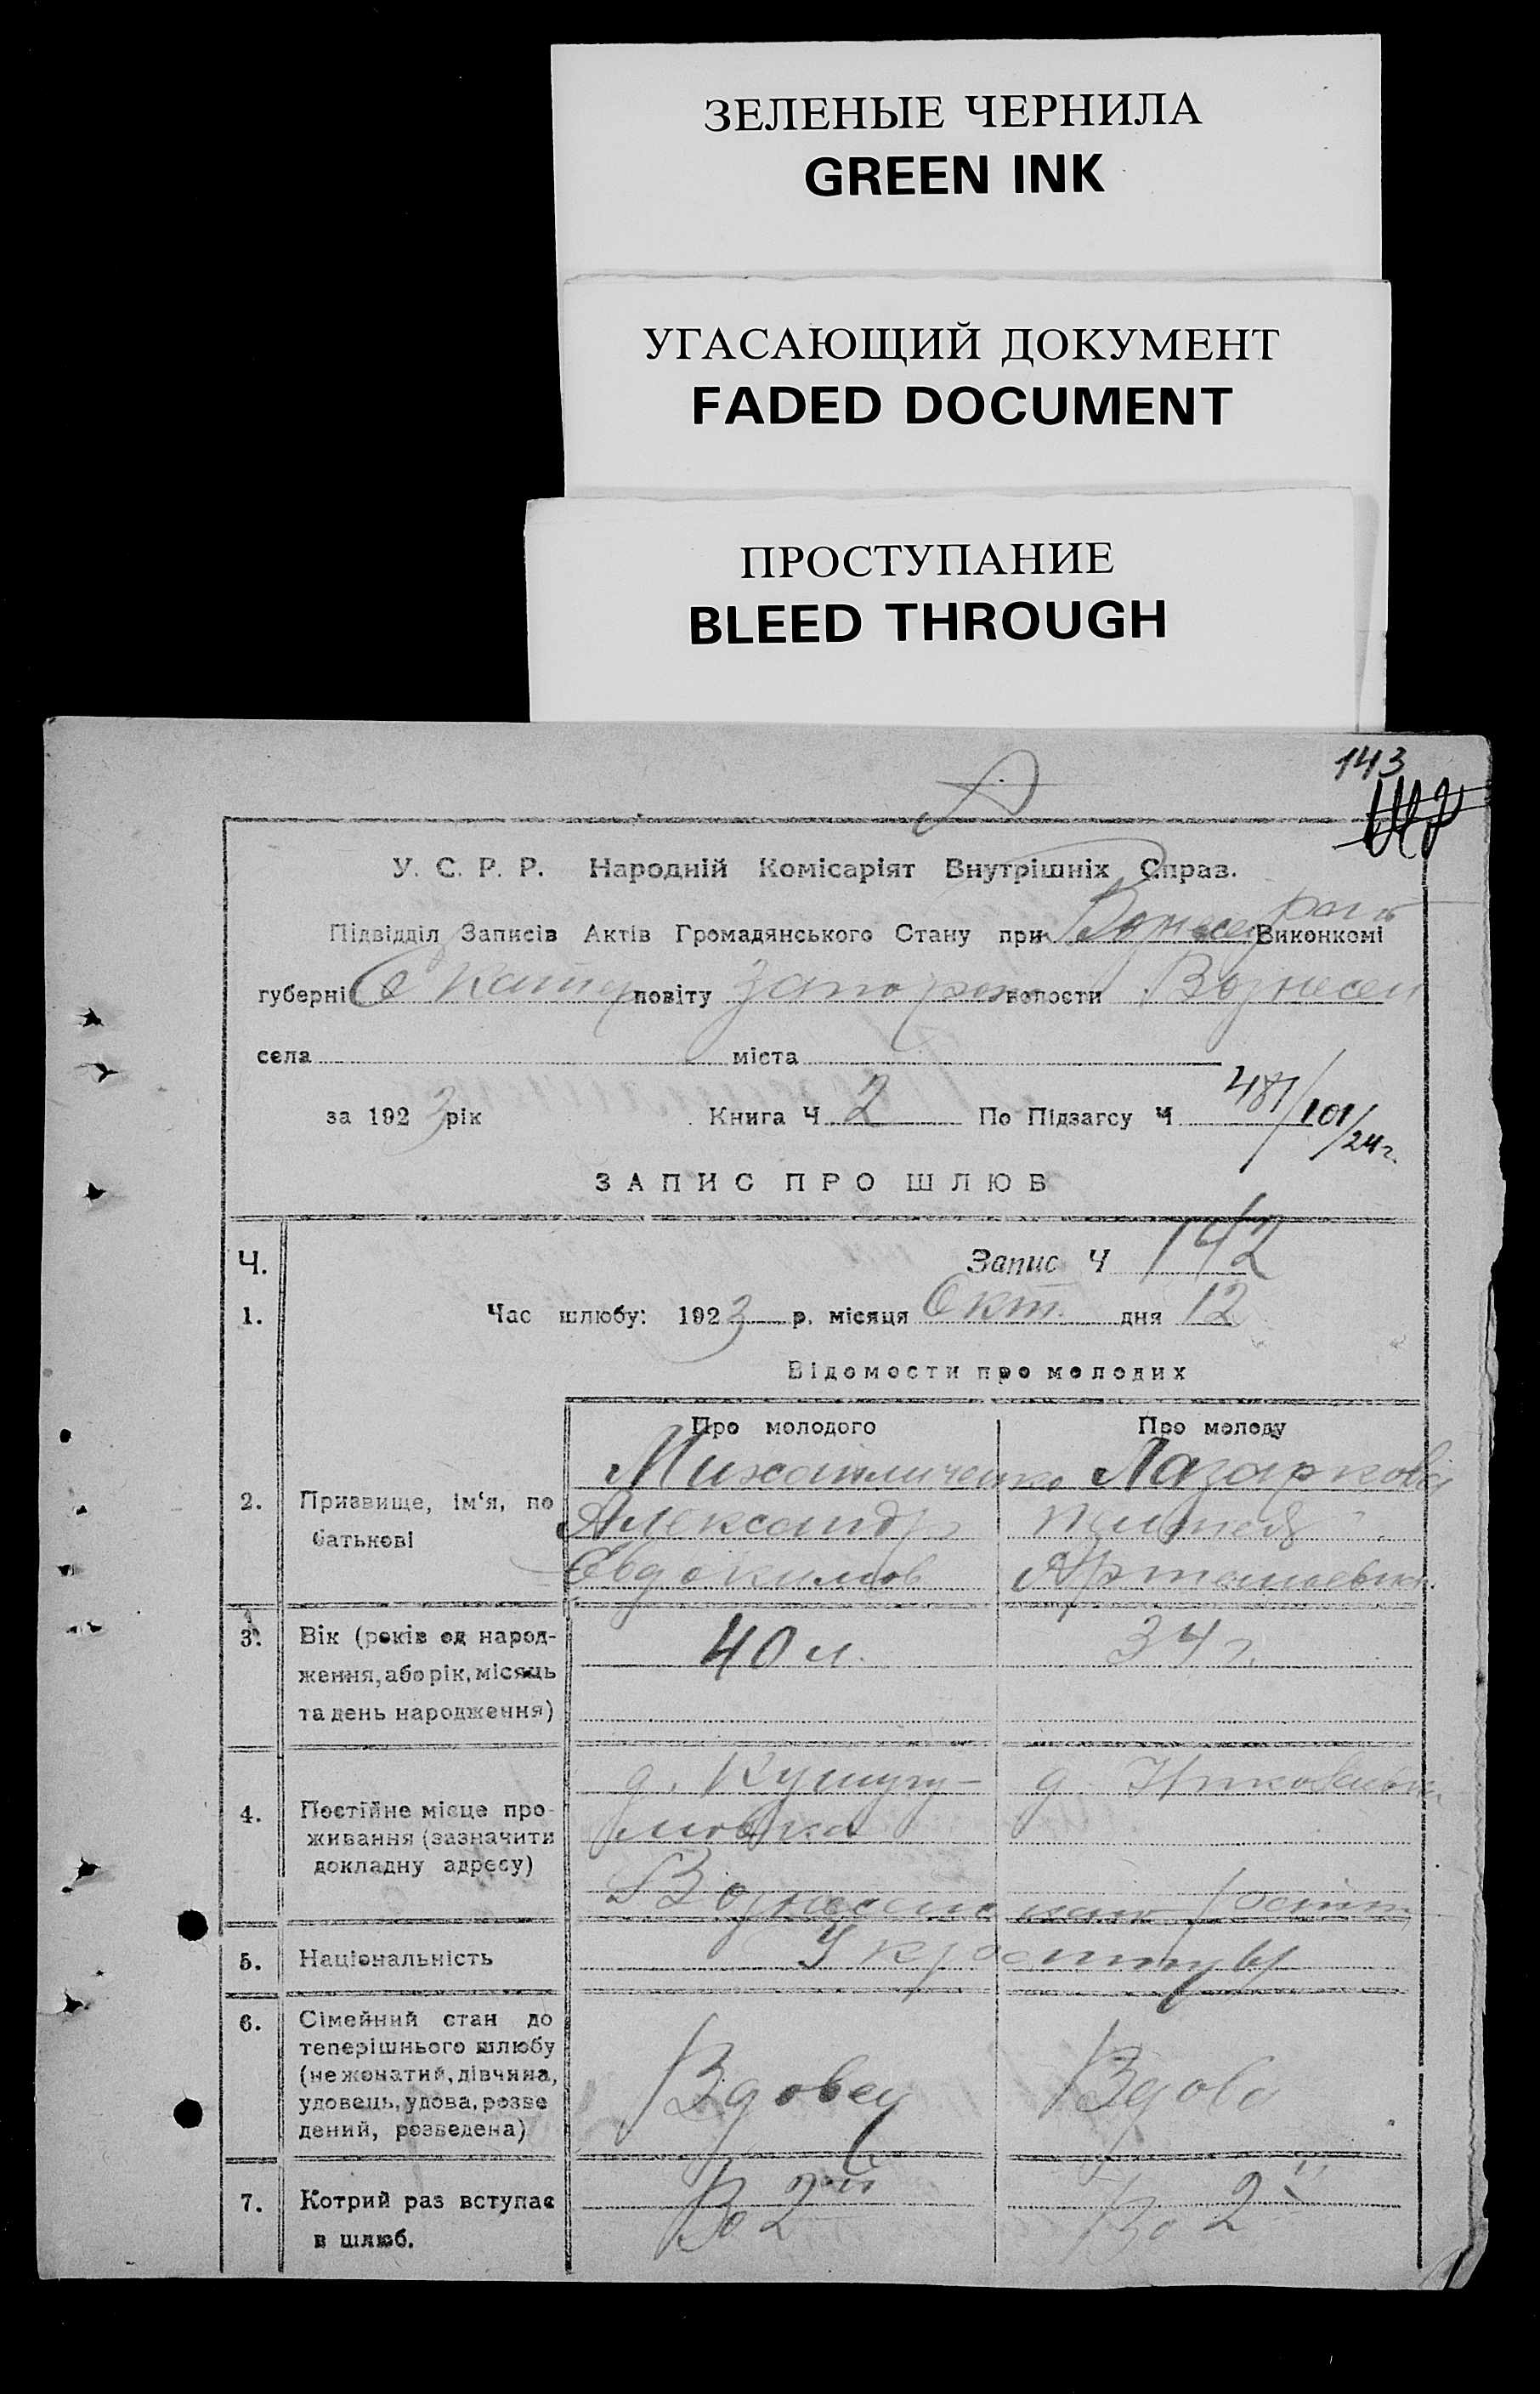 ЗЕЛЕНЫЕ ЧЕРНИЛА
GREEN INK
УГАСАЮЩИЙ ДОКУМЕНТ
FADED DOCUMENT
ПРОСТУПАНИЕ
BLEED THROUGH
143
У. С. Р. Р. Народній Комісаріят Внутрішніх Справ.
Підвідділ Записів Актів Громадянського Стану при Виконкомі
губерні Екатер повіту Запорож волости Вознесен
села міста
за 1923 рік Книга Ч 2 По Підзагсу Ч 481/101/24г.
ЗАПИС ПРО ШЛЮБ
Ч. Запис Ч 142
1. Час шлюбу: 1923 р. місяця Окт. дня 12
Відомости про молодих
Про молодого Про молоду
2. Призвище, ім‘я, по батькові
Лазаркова
Александр
Евдокимов
3. Вік (років од народ-
ження, або рік, місяць
та день народження)
40 л. 34 г.
4. Постійне місце про-
живання (зазначити
докладну адресу)
д. Кушугу- д.
мовка
5. Національність
6. Сімейний стан до
теперішнього шлюбу
(не жонатий, дівчина,
удовець, удова, розве
дений, розведена)
Вдовец Вдова
7. Котрий раз вступає
в шлюб.
Во 2й Во 2й